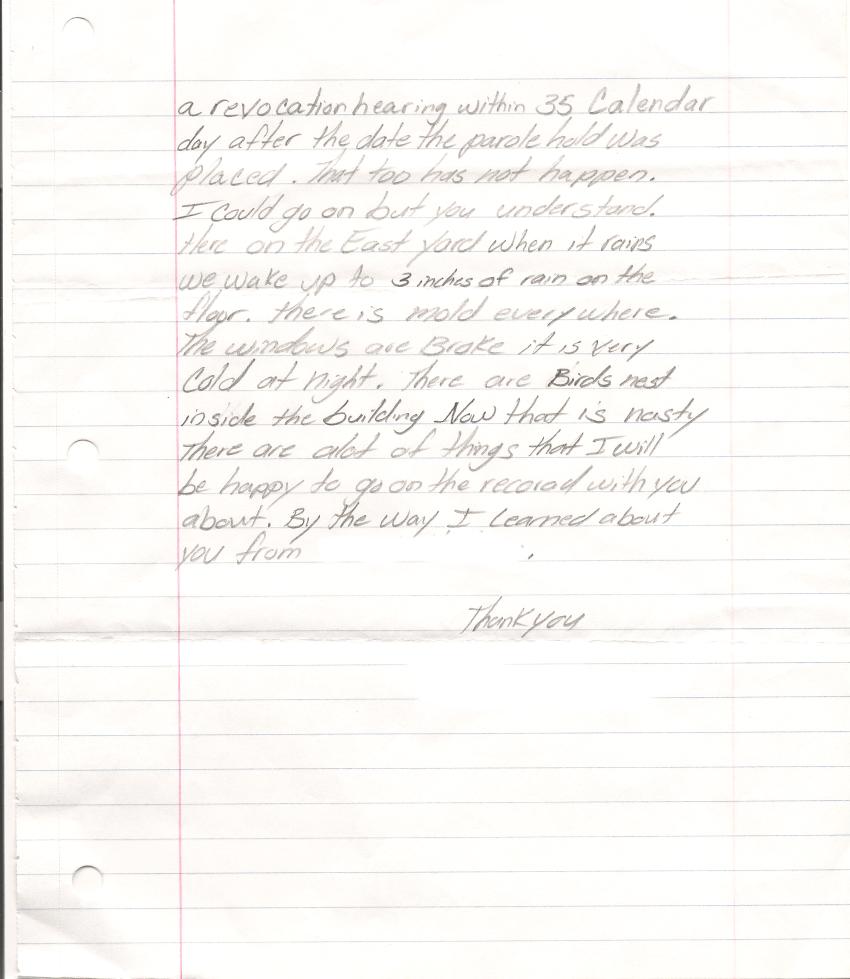 a revocation hearing within 35 Calendar
day after the date the parole hold was
placed. That too has not happen.
I could go on but you understand.
Here on the East yard when it rains
we wake up to 3 inches of rain on the
floor. there is mold everywhere.
The windows are Broke it is very
Cold at night. There are Birds nest
inside the building Now that is nasty
There are alot of things that I will
be happy to go on the recorad with you
about. By the way I Learned about
you from .
Thank you